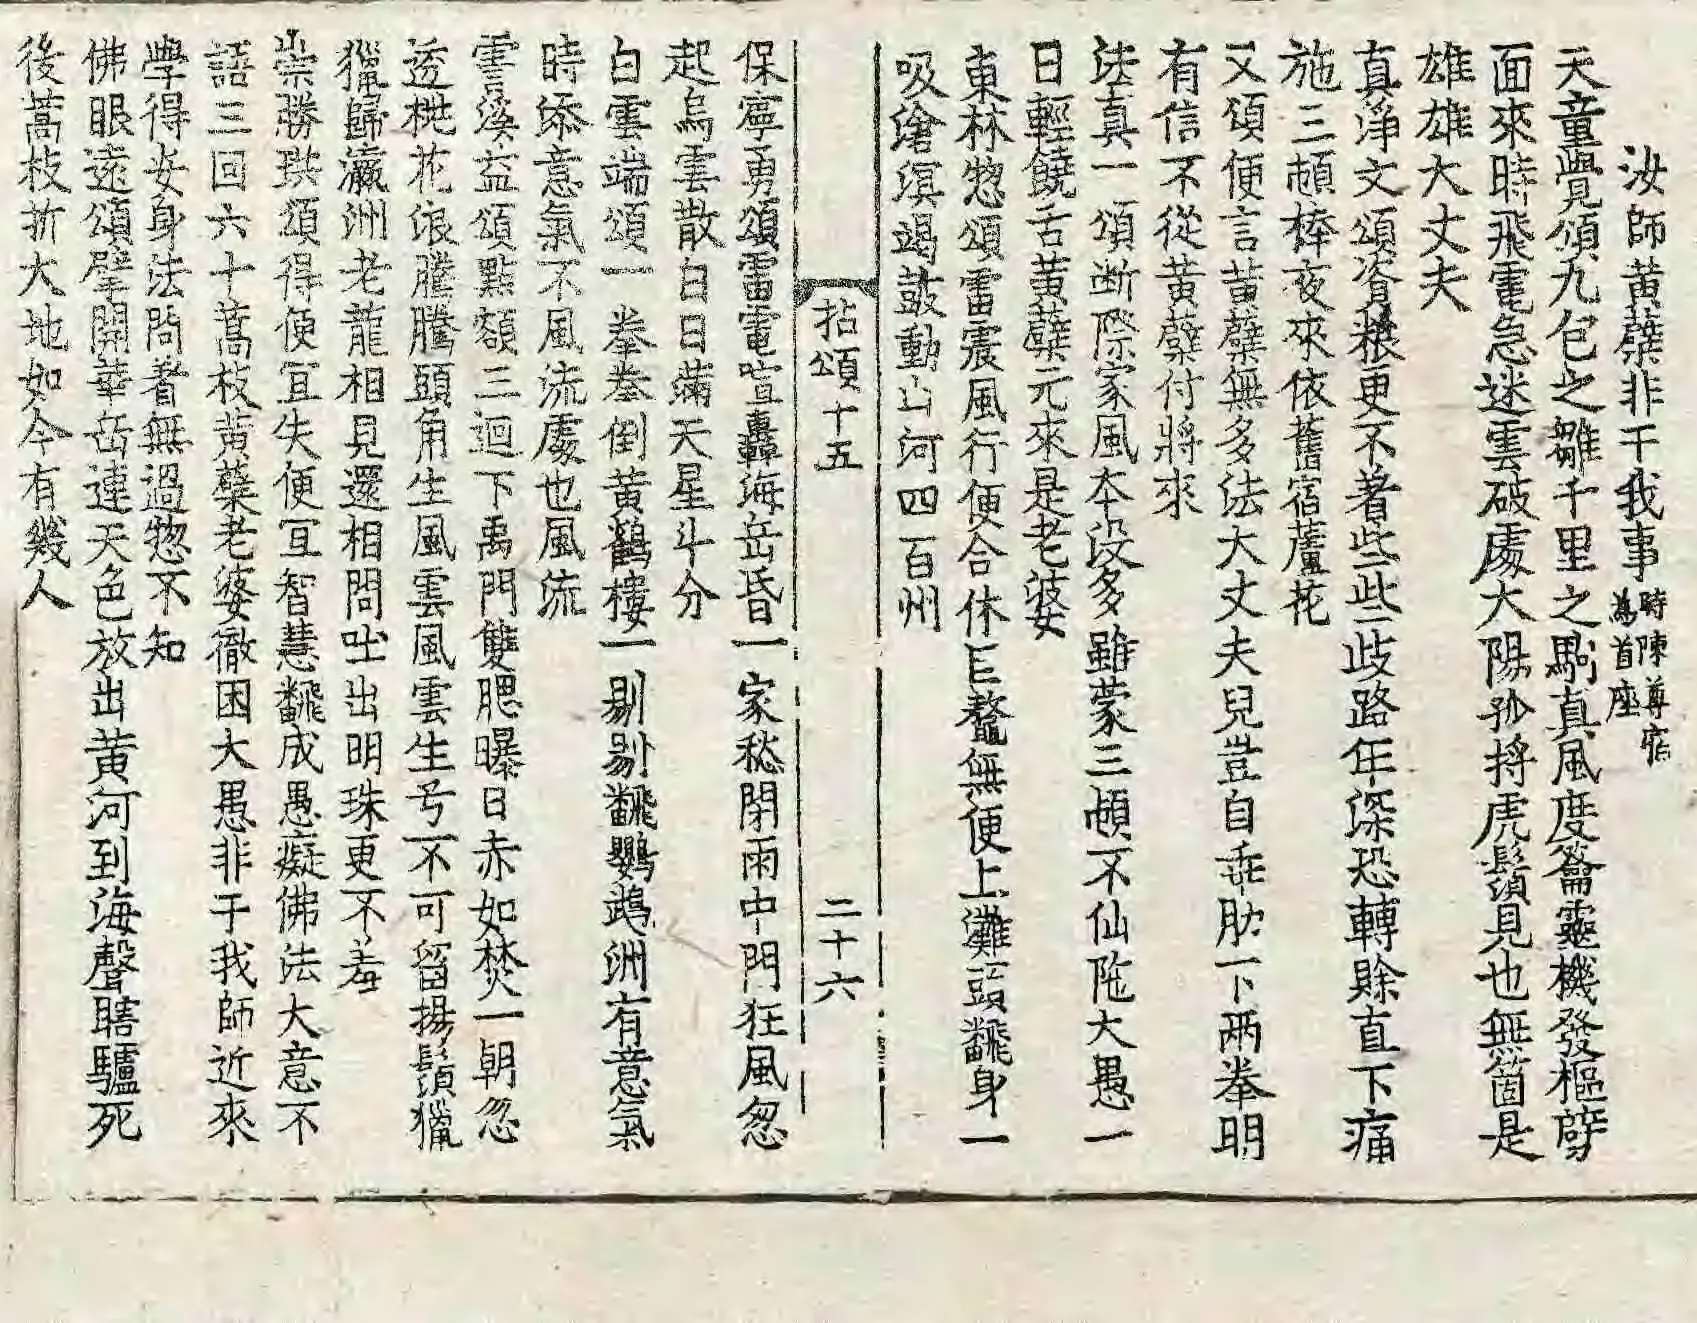 汝師黄蘗非干我事時陳尊宿爲首座
天童覺頌九包之雛千里之駒真風度籥靈機發樞劈
面來時飛電急迷雲破處大陽孤捋虎鬚見也無箇是
雄雄大丈夫
真淨文頌資糧更不著些些歧路年深恐轉賖直下痛
施三頓棒夜來依舊宿蘆花
又頌便言黄蘗無多法大丈夫兒豈自乖肋下兩拳明
有信不從黄蘗付將來
法真一頌断際家風本没多雖蒙三頓不仙陁大愚一
日輕饒舌黄蘗元來是老婆
東林惣頌雷震風行便合休巨鼇無便上灘頭飜身一
吸滄溟竭鼓動山河四百州
拈頌十五
二十六
保寧勇頌雷電喧轟海岳昏一家愁閉雨中門狂風忽
起烏雲散白日滿天星斗分
白雲端頌一拳拳倒黄鶴樓一剔剔飜鸚鵡洲有意氣
時添意氣不風流處也風流
雲溪益頌點額三迴下禹門雙腮曝日赤如焚一朝忽
透桃花浪騰騰頭角生風雲風雲生兮不可留揚鬚獵
獵歸瀛洲老龍相見還相問吐出明珠更不羞
崇勝珙頌得便冝失便冝智慧飜成愚癡佛法大意不
語三回六十蒿枝黄蘗老婆徹困大愚非干我師近來
學得安身法問着無過惣不知
佛眼遠頌擘開華岳連天色放出黄河到海聲瞎驢死
後蒿枝折大地如今有幾人